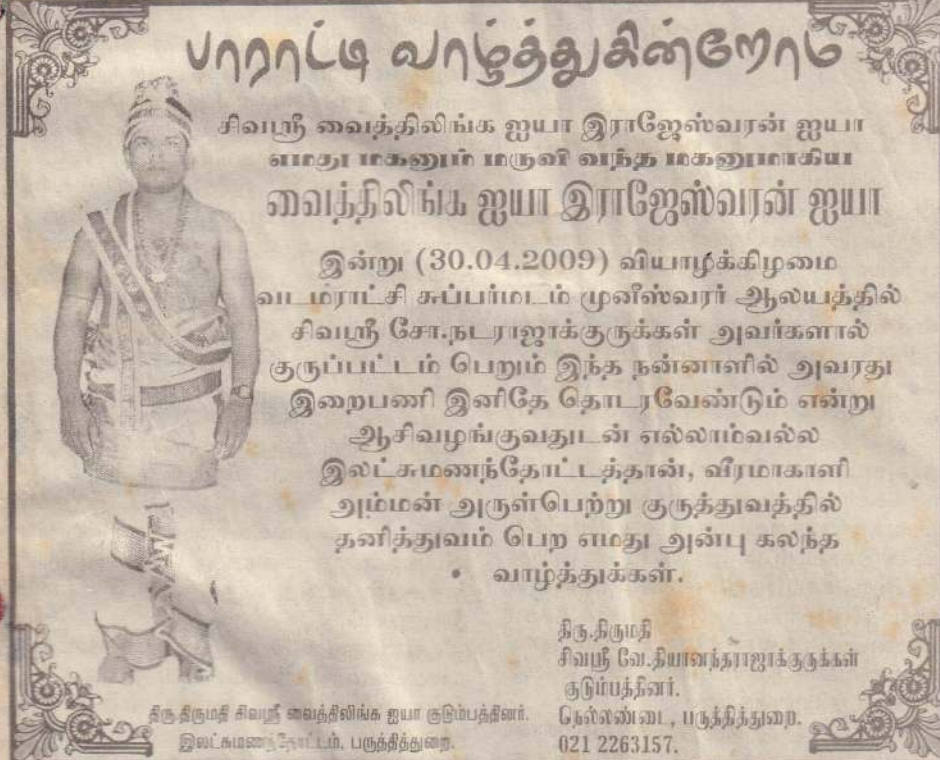 பாராட்டி வாழ்த்துகின்றோம்
சிவஸ்ரீ வைத்திலிங்க ஐயா இராஜேஸ்வரன் ஐயா
எமது மகனும் மருவி வந்த மகனுமாகிய
வைத்திலிங்க ஐயா இராஜேஸ்வரன் ஐயா
இன்று (30.04.2009) வியாழக்கிழமை
வடமராட்சி சுப்பர்மடம் முனீஸ்வரர் ஆலயத்தில்
சிவஸ்ரீ சோ.நடராஜாக்குருக்கள் அவர்களால்
குருப்பட்டம் பெறும் இந்த நன்னாளில் அவரது
இறைபணி இனிதே தொடரவேண்டும் என்று
ஆசிவழங்குவதுடன் எல்லாம்வல்ல
இலட்சுமணந்தோட்டத்தான், வீரமாகாளி
அம்மன் அருள்பெற்று குருத்துவத்தில்
தனித்துவம் பெற எமது அன்பு கலந்த
வாழ்த்துக்கள்.
திரு.திருமதி சிவஸ்ரீ வைத்திலிங்க ஐயா குடும்பத்தினர்.
இலட்சுமணந்தோட்டம், பருத்தித்துறை.
திரு.திருமதி
சிவஸ்ரீ வே.தியானந்தராஜாக்குருக்கள்
குடும்பத்தினர்.
நெல்லண்டை, பருத்தித்துறை.
021 2263157.